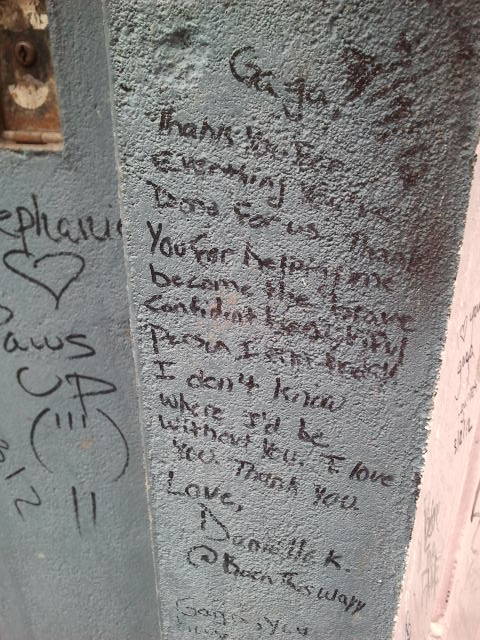 Gaga,
Thank You For
Everything You've
Done For us. Thank
You For helping me
become the brave
confident beautiful
Person I am today.
I don't know
where I'd be
without You. I love
You. Thank You.
Love,
Danielle K.
@BornThisWayy
Gaga, you
ephanie
Paws
UP